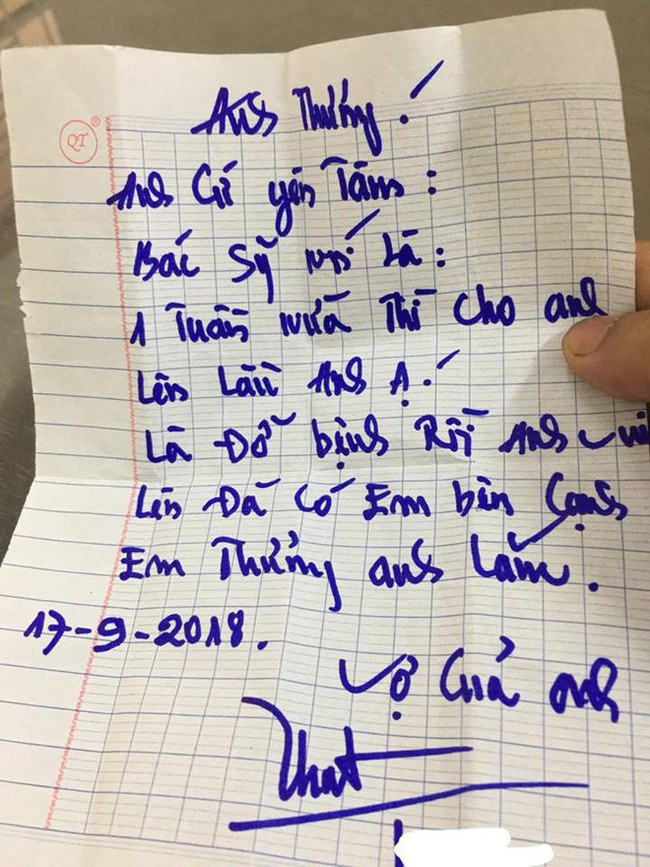 QT
Anh Thướng!
Anh Cứ yên Tâm:
Bác Sỹ nói Là:
1 Tuần nữa Thì Cho anh
Lên Lầu Anh Ạ!
Là Đỡ bịnh Rồi Anh vui
Lên Đã Có Em bên Cạnh
Em Thương anh Lắm.
17-9-2018.
Vợ Của anh